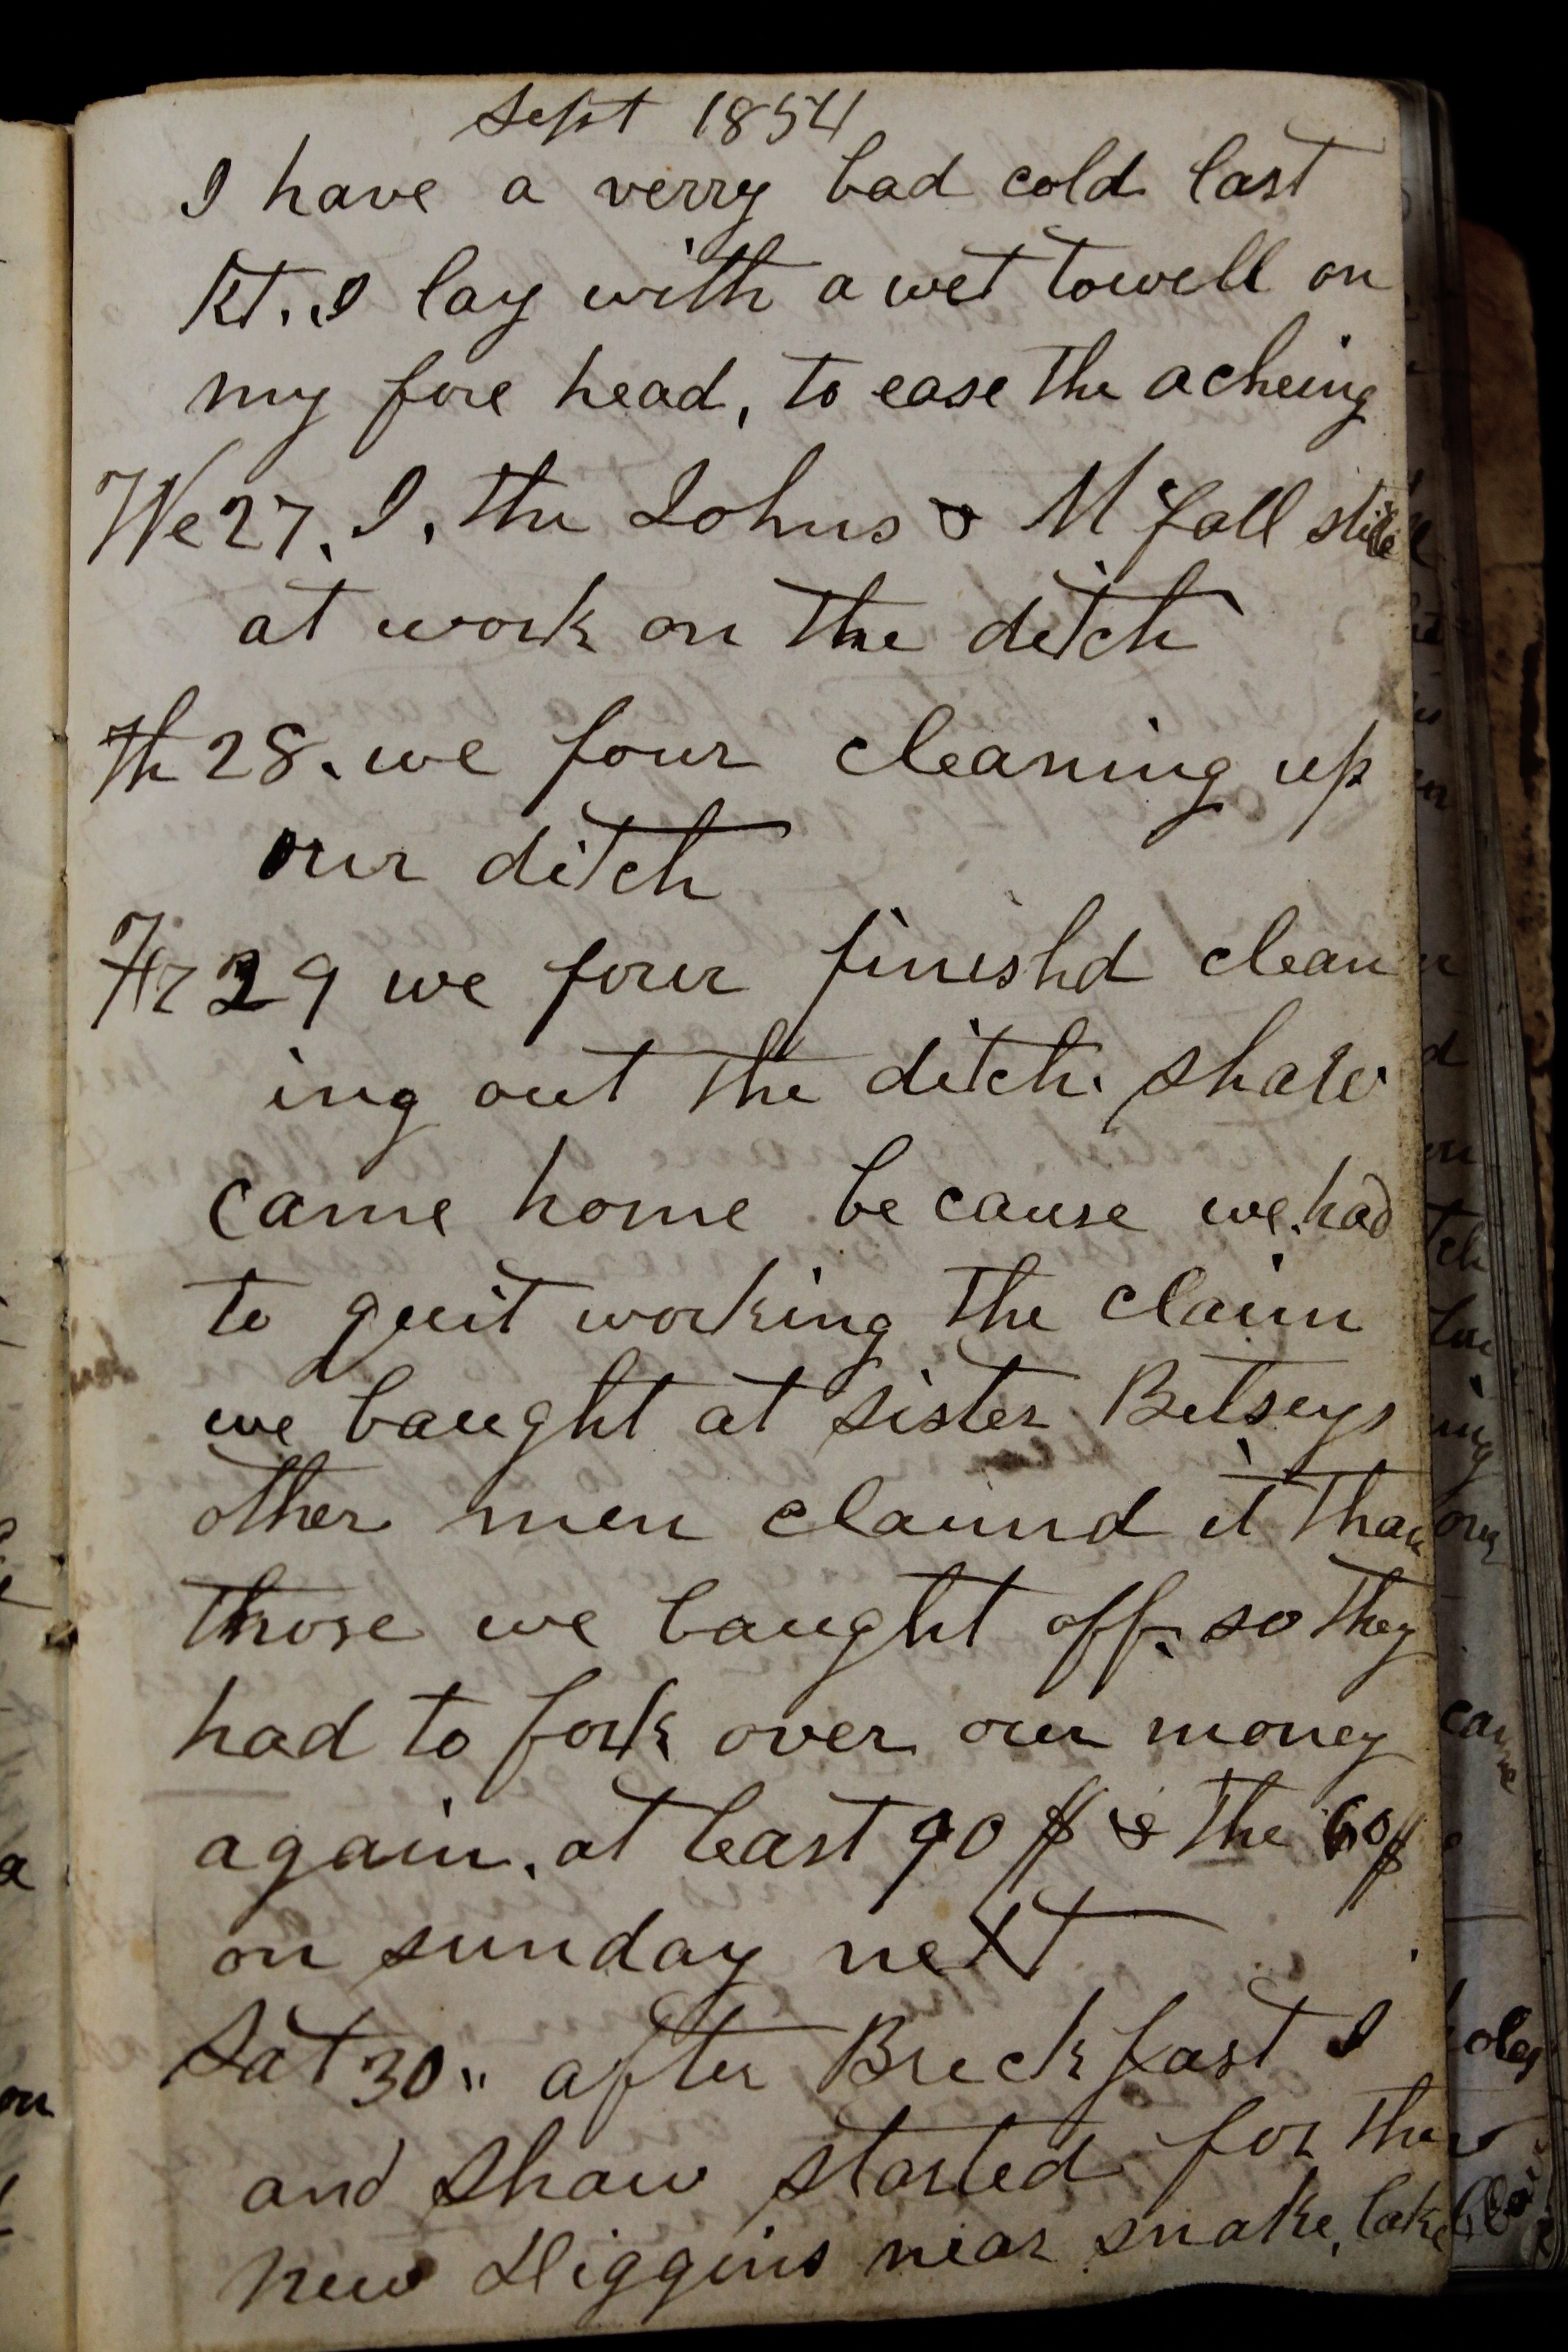 Sept 1854
I have a verry bad cold last
Kt. I lay with a wet towell on
my fore head, to ease the acheing
We 27. I, the Johns & McFall still
at work on the ditch
Th 28. we four cleaning up
our ditch
Fr 29 we four finishd clean
ing out the ditch. Shaw
came home be cause we had
to quit working the claim
we baught at sister Betseys
other men claimd it than
those we baught off. so they
had to fork over our money
again. at least 90 $ & the 60 $
on sunday next
Sat 30 " after Breckfast I
and Shaw started for the
new Diggins near snake lake